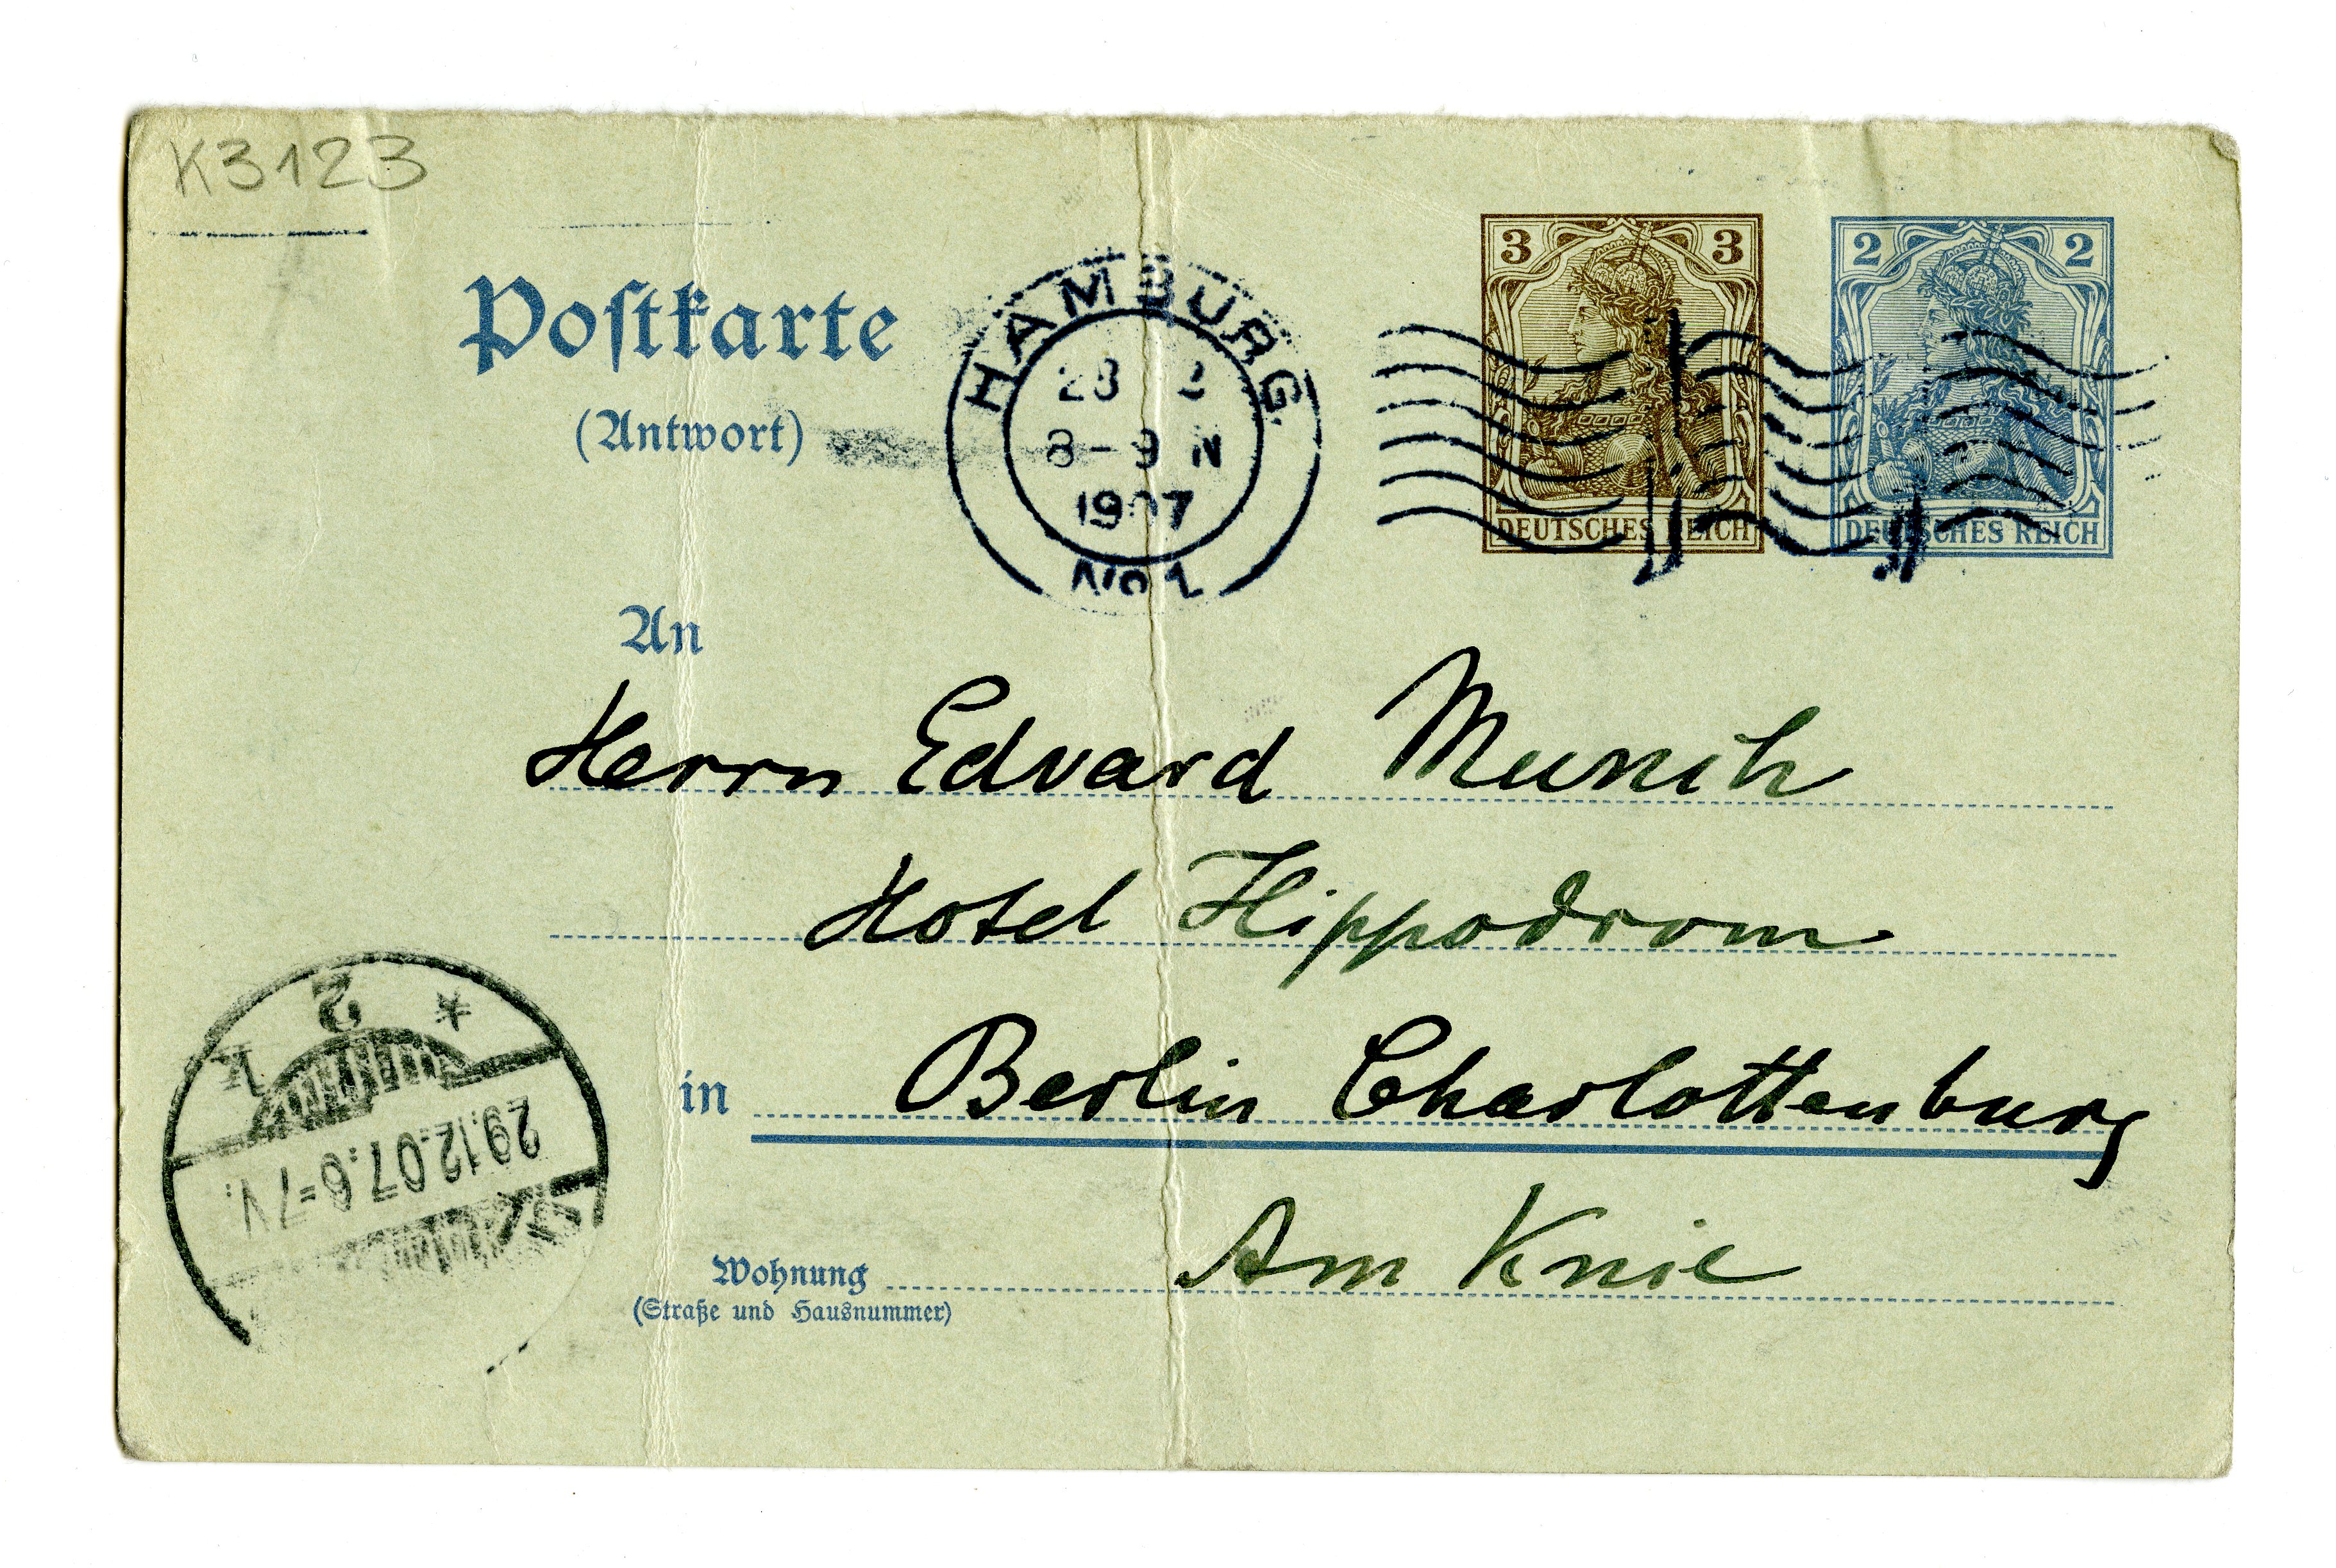 K3123
Postkarte
(Antwort)
HAMBURG
28 2
8-9 N
1907
No 1
3 3
DEUTSCHES REICH
2 2
DEUTSCHES REICH
An
Herrn Edvard Munch
Hotel Hippodrom
in Berlin Charlottenburg
Wohnung Am Knie
(Straße und Hausnummer)
* 2 k
29.12.07.6-7V.